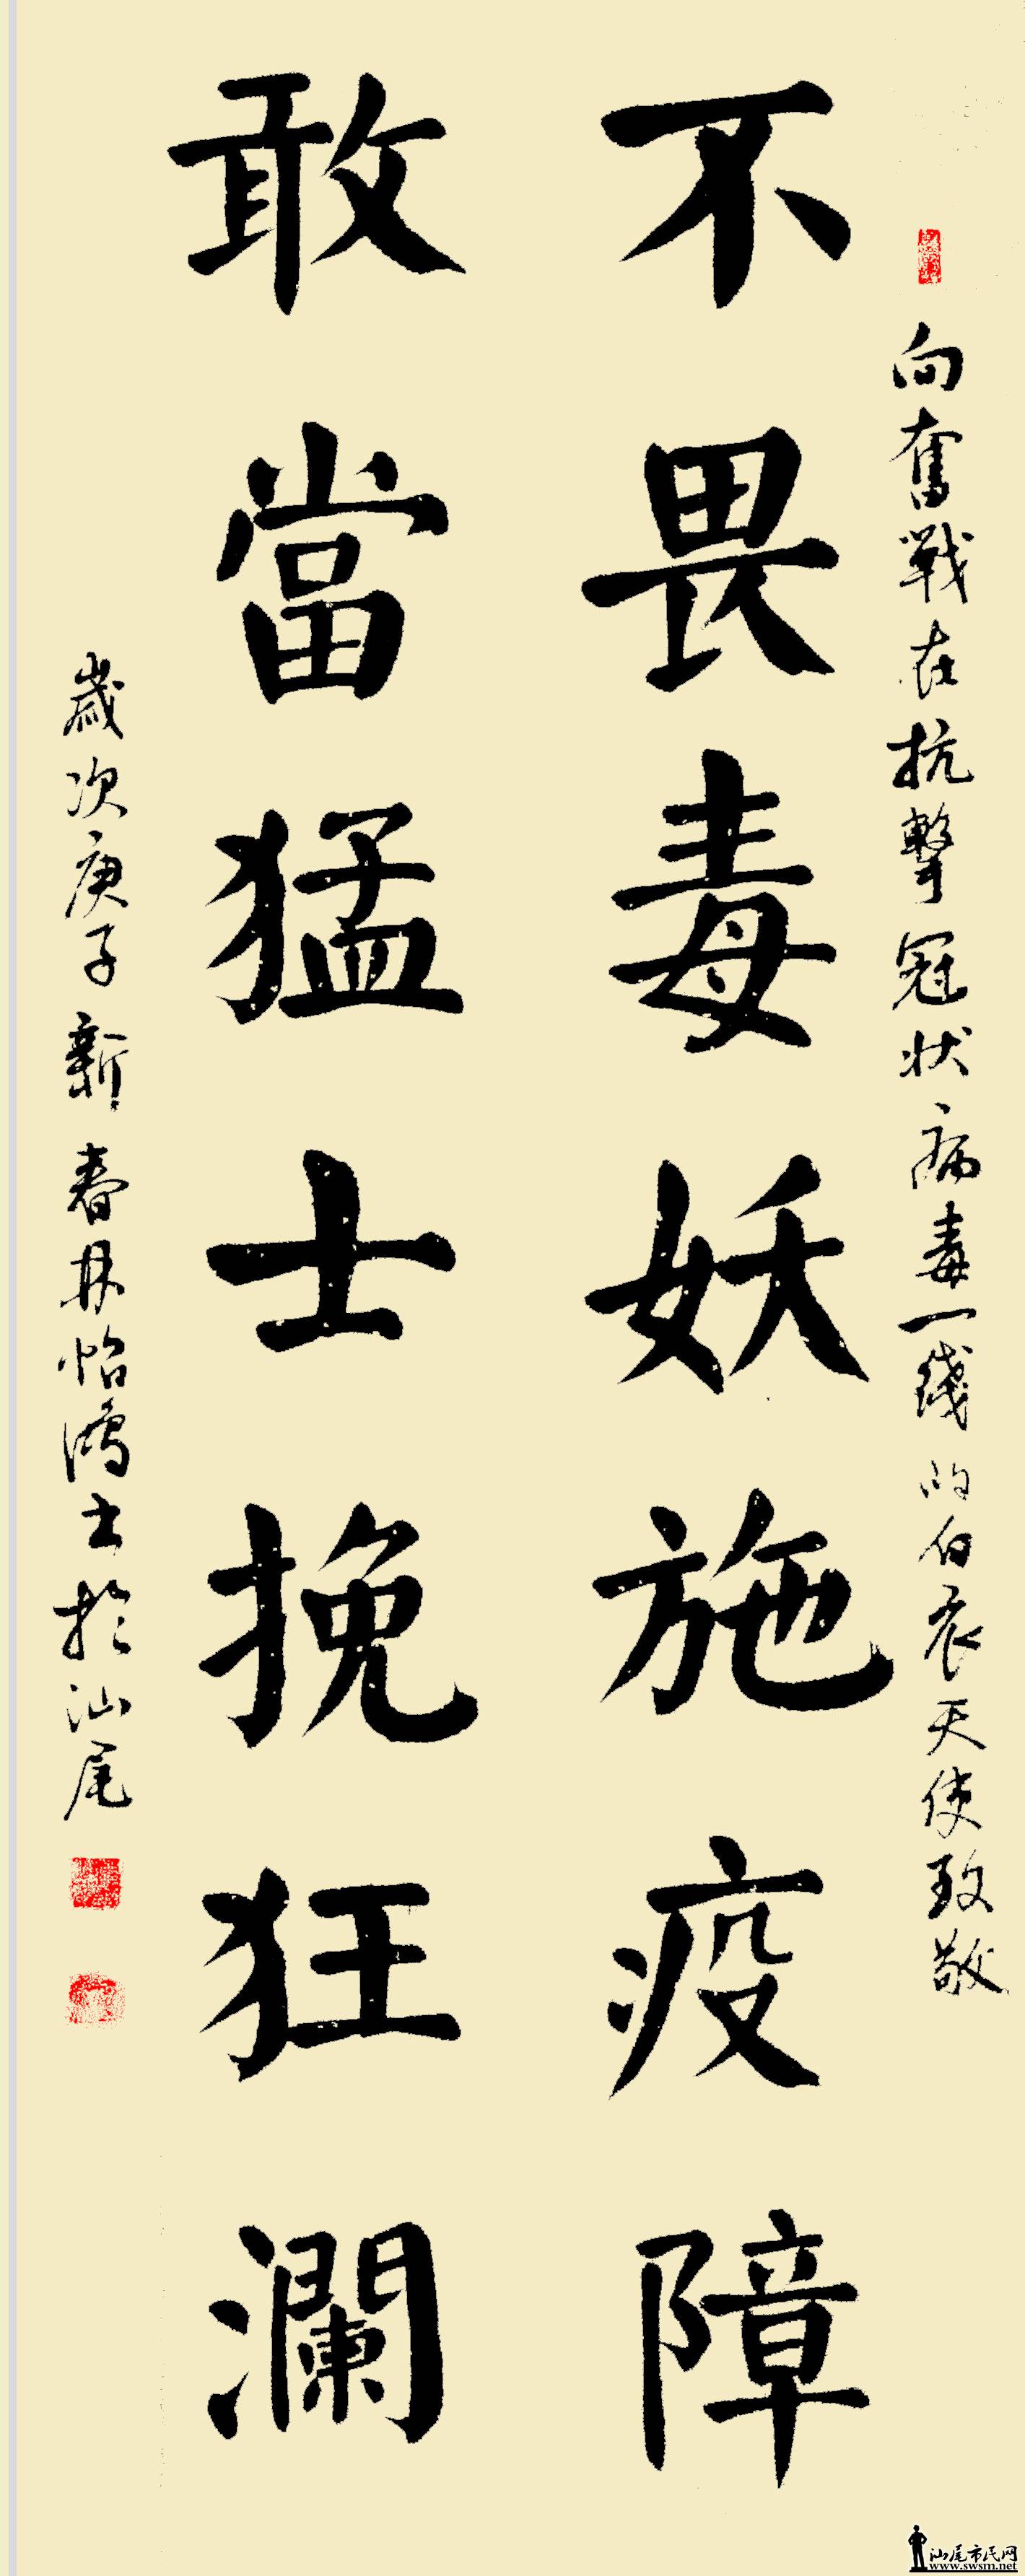 向奮戰在抗擊冠状病毒一綫的白衣天使致敬
不畏毒妖施疫障
敢當猛士挽狂瀾
歲次庚子新春林怡鴻书於汕尾
汕尾市民网
www.swsm.net